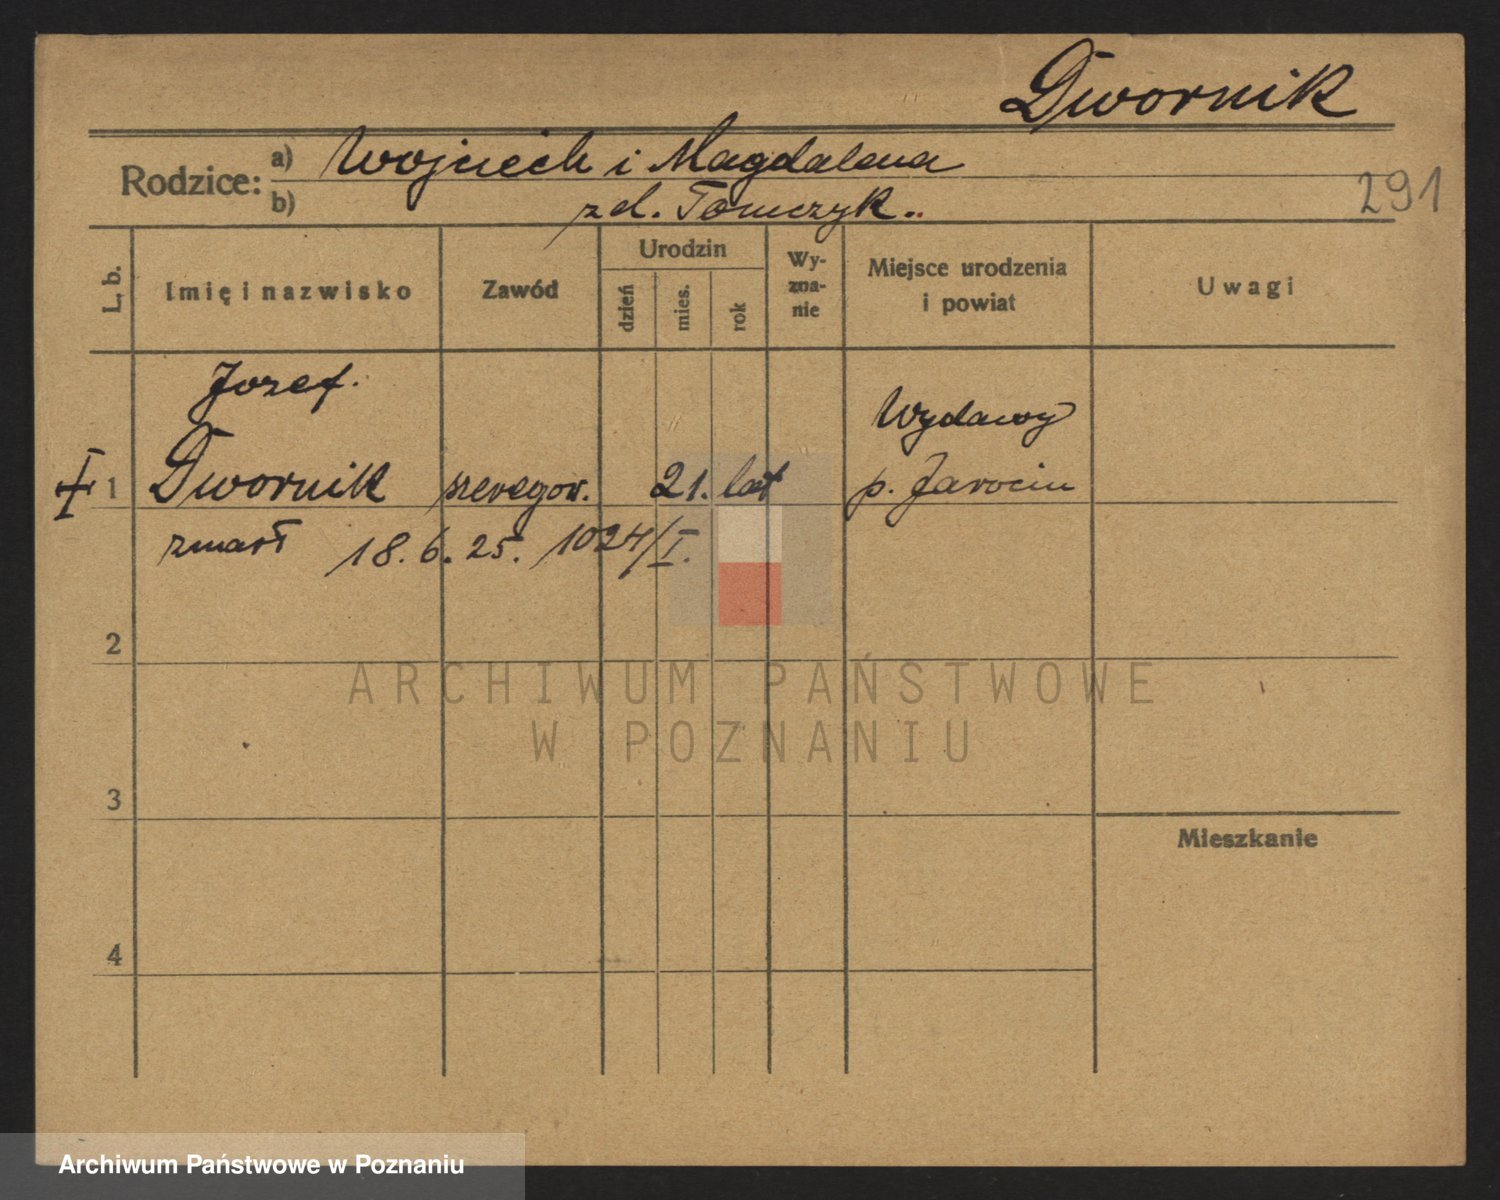 Dwornik
Rodzice: a) Wojciech i Magdalena
b) zd. Tomczyk.
291
L. b. Imię i nazwisko Zawód Urodzin dzień mies. rok Wy-zna-nie Miejsce urodzenia i powiat Uwagi
Jozef.
Wydawy
1 Dwornik szeregow. 21. lat p. Jarocin
zmarł 18. 6. 25. 1024/I.
2
ARCHIWUM PAŃSTWOWE
W POZNANIU
3
Mieszkanie
4
Archiwum Państwowe w Poznaniu